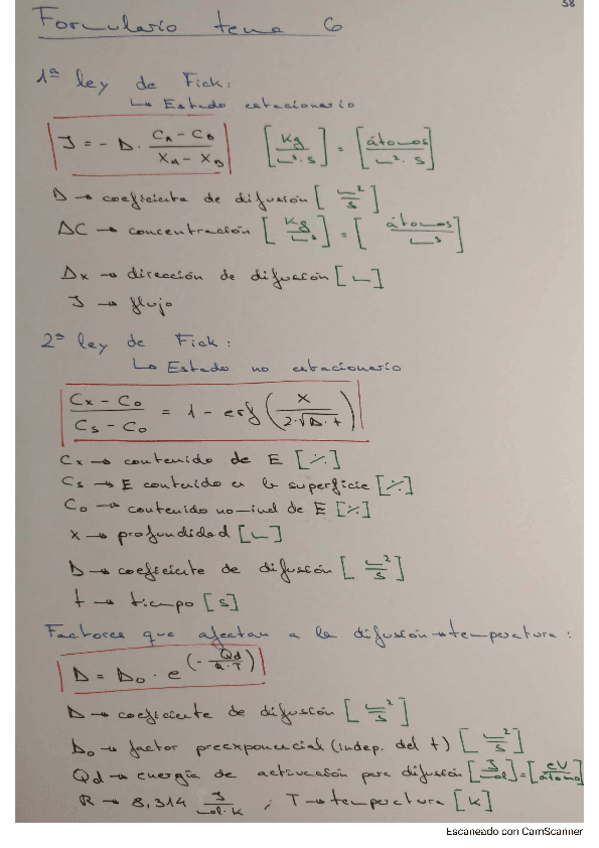 58
Formulario tema 6
1ª ley de Fick:
↳ Estado estacionario
J = - D · (C_A - C_B)/(X_A - X_B) [kg/m²·s] = [átomos/m²·s]
D → coeficiente de difusión [m²/s]
ΔC → concentración [kg/m³] = [átomos/m³]
Δx → dirección de difusión [m]
J → flujo
2ª ley de Fick:
↳ Estado no estacionario
(Cx - Co)/(Cs - Co) = 1 - erf (x/(2·√D·t))
Cx → contenido de E [%]
Cs → E contenido en la superficie [%]
Co → contenido nominal de E [%]
x → profundidad [m]
D → coeficiente de difusión [m²/s]
t → tiempo [s]
Factores que afectan a la difusión → temperatura:
D = Do · e^(- Qd/R·T)
D → coeficiente de difusión [m²/s]
Do → factor preexponencial (indep. del t) [m²/s]
Qd → energía de activación para difusión [J/mol] = [eV/átomo]
R → 8,314 J/mol·k ; T → temperatura [k]
Escaneado con CamScanner